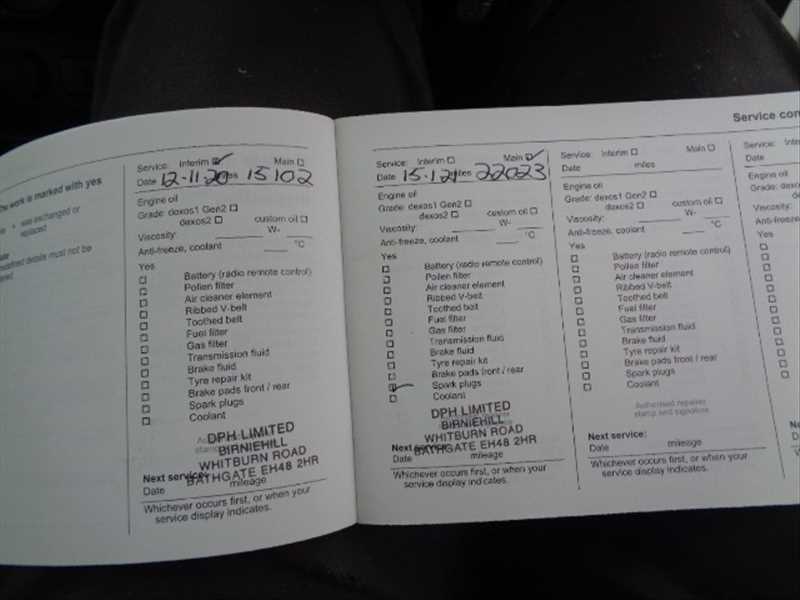 Service con
The work is marked with yes
was exchanged or
replaced
details must not be
Service: Interim Main
Date 12-11-20 miles 15102
Engine oil
Grade: dexos1 Gen2
dexos2 custom oil
Viscosity: W-
Anti-freeze, coolant °C
Yes
Battery (radio remote control)
Pollen filter
Air cleaner element
Ribbed V-belt
Toothed belt
Fuel filter
Gas filter
Transmission fluid
Brake fluid
Tyre repair kit
Brake pads front / rear
Spark plugs
Coolant
DPH LIMITED
BIRNIEHILL
WHITBURN ROAD
BATHGATE EH48 2HR
Next service:
Date mileage
Whichever occurs first, or when your
service display indicates.
Service: Interim Main
Date 15-1-21 miles 22023
Engine oil
Grade: dexos1 Gen2
dexos2 custom oil
Viscosity: W-
Anti-freeze, coolant °C
Yes
Battery (radio remote control)
Pollen filter
Air cleaner element
Ribbed V-belt
Toothed belt
Fuel filter
Gas filter
Transmission fluid
Brake fluid
Tyre repair kit
Brake pads front / rear
Spark plugs
Coolant
DPH LIMITED
BIRNIEHILL
WHITBURN ROAD
BATHGATE EH48 2HR
Next service:
Date mileage
Whichever occurs first, or when your
service display indicates.
Service: Interim Main
Date miles
Engine oil
Grade: dexos1 Gen2
dexos2 custom oil
Viscosity: W-
Anti-freeze, coolant °C
Yes
Battery (radio remote control)
Pollen filter
Air cleaner element
Ribbed V-belt
Toothed belt
Fuel filter
Gas filter
Transmission fluid
Brake fluid
Tyre repair kit
Brake pads front / rear
Spark plugs
Coolant
Authorised repairer
stamp and signature
Next service:
Date mileage
Whichever occurs first, or when your
service display indicates.
Service: Inte
Date
Engine oil
Grade: dexos
dex
Viscosity:
Anti-freeze,
Yes